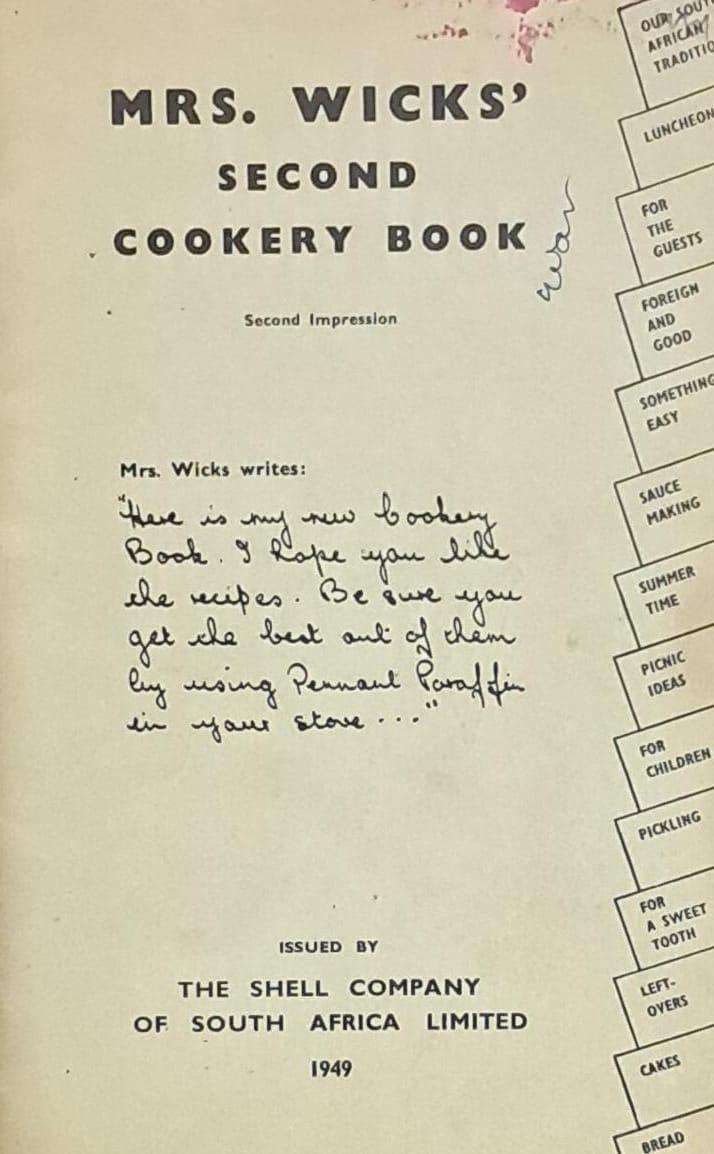 MRS. WICKS'
SECOND
COOKERY BOOK
Second Impression
Mrs. Wicks writes:
"Here is my new Cookery
Book. I hope you like
the recipes. Be sure you
get the best out of them
by using Pennant Paraffin
in your stove ..."
ISSUED BY
THE SHELL COMPANY
OF SOUTH AFRICA LIMITED
1949
OUR SOUT
AFRICAN
TRADITIO
LUNCHEON
FOR
THE
GUESTS
FOREIGN
AND
GOOD
SOMETHING
EASY
SAUCE
MAKING
SUMMER
TIME
PICNIC
IDEAS
FOR
CHILDREN
PICKLING
FOR
A SWEET
TOOTH
LEFT-
OVERS
CAKES
BREAD